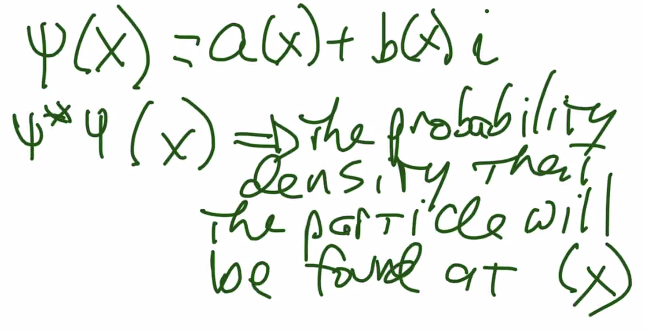 ψ(x) = a(x) + b(x) i
ψ*ψ(x) ⇒ The probability
density that
the particle will
be found at (x)